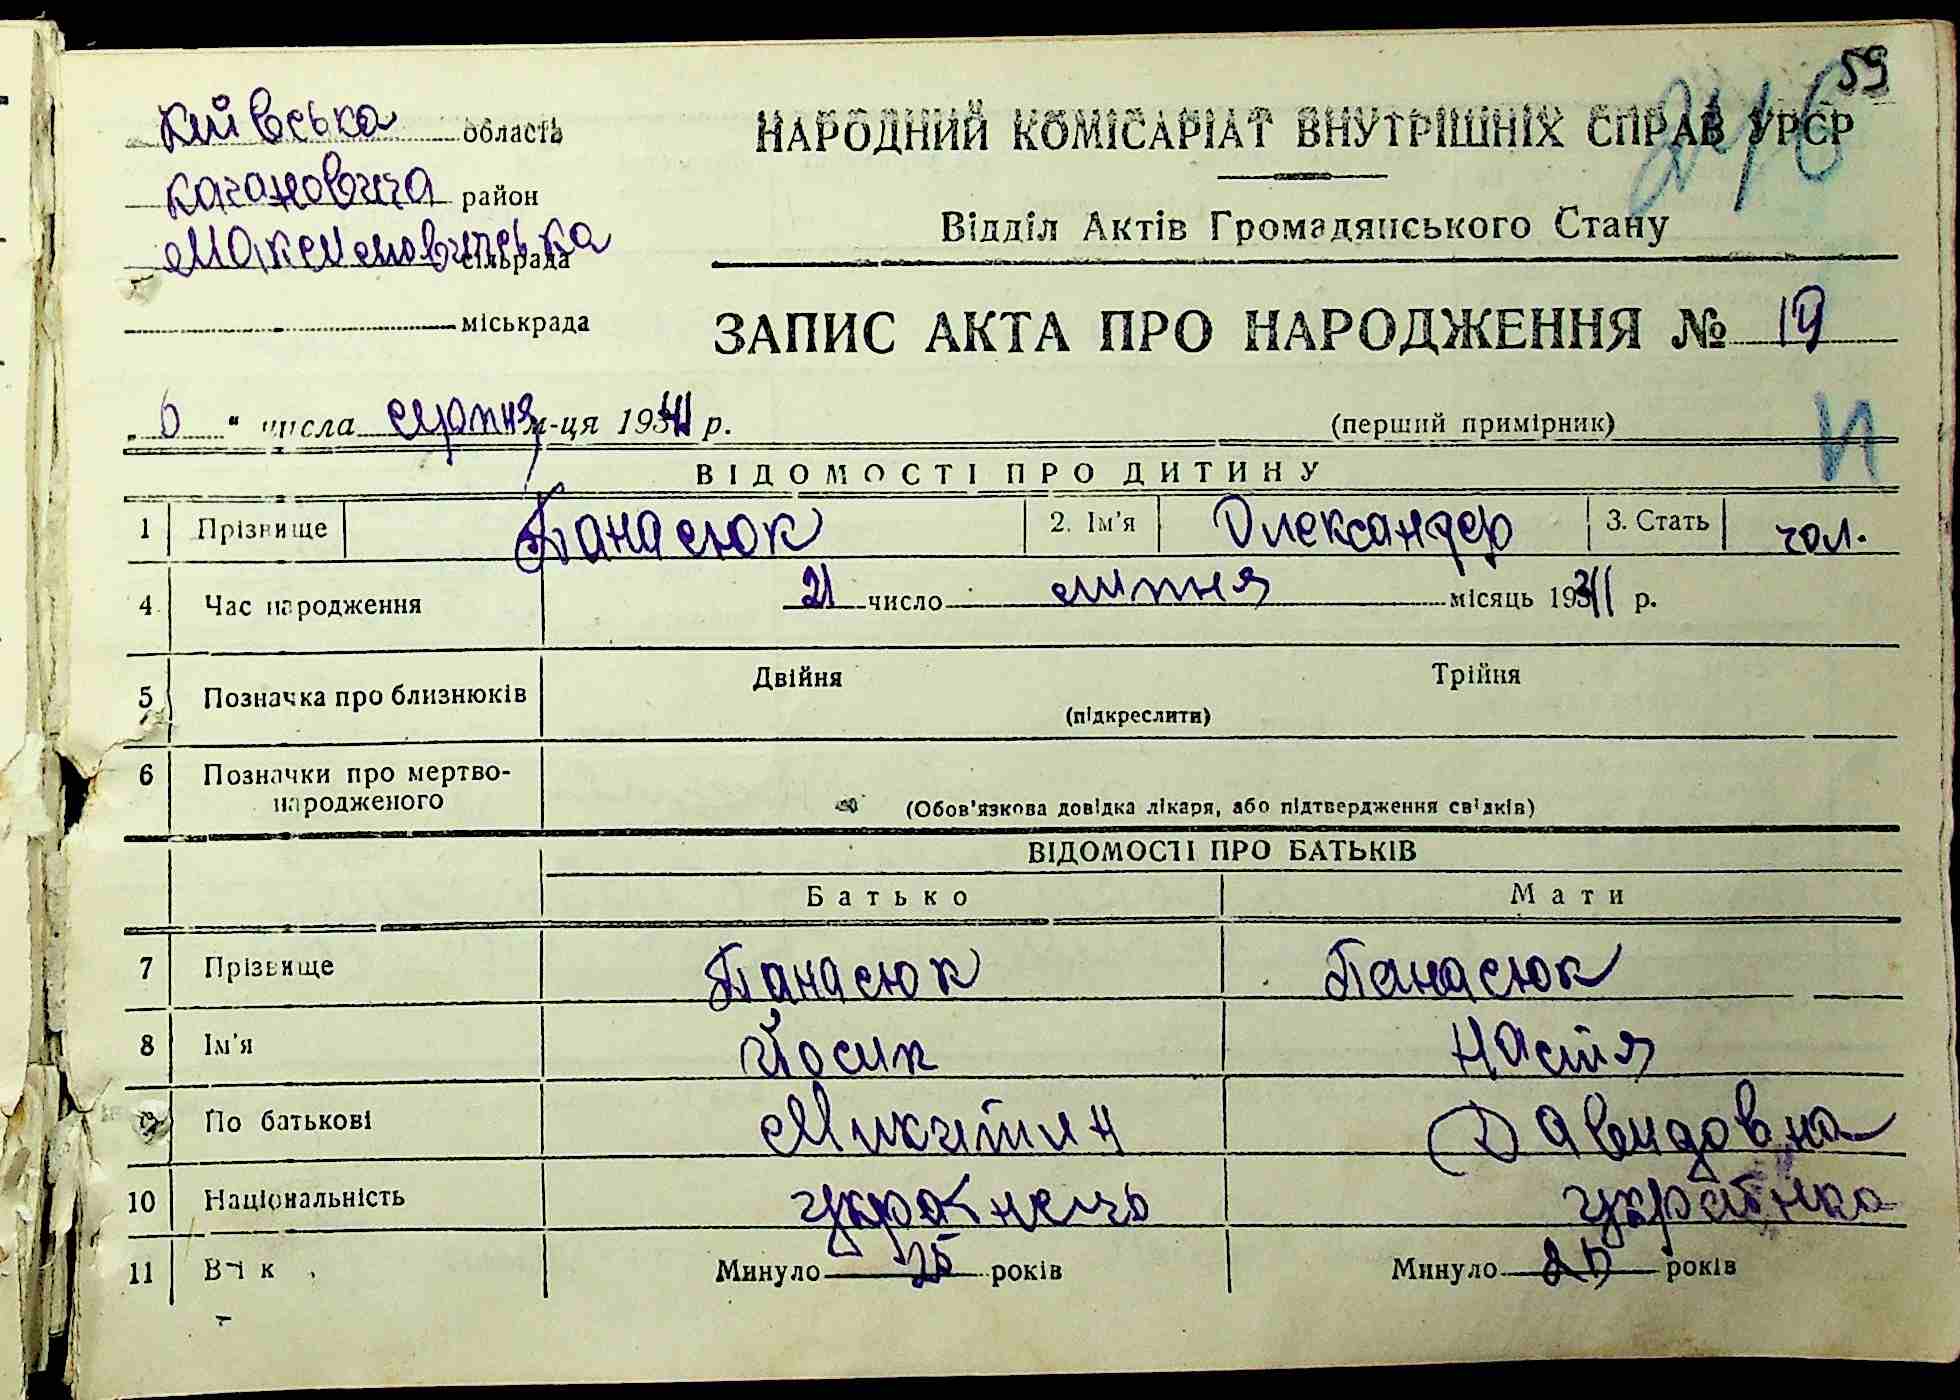 59
246
Київська область
НАРОДНИЙ КОМІСАРІАТ ВНУТРІШНІХ СПРАВ УРСР
Кагановича район
Відділ Актів Громадянського Стану
сільрада
міськрада
ЗАПИС АКТА ПРО НАРОДЖЕННЯ № 19
„6“ числа серпня м-ця 1941 р.
(перший примірник)
И
ВІДОМОСТІ ПРО ДИТИНУ
1 Прізвище Панасюк 2. Ім'я Олександер 3. Стать чол.
4 Час народження 21 число липня місяць 1941 р.
5 Позначка про близнюків Двійня Трійня
(підкреслити)
6 Позначки про мертво-
народженого (Обов'язкова довідка лікаря, або підтвердження свідків)
ВІДОМОСТІ ПРО БАТЬКІВ
Батько Мати
7 Прізвище Панасюк Панасюк
8 Ім'я Йосип Настя
9 По батькові Микитин Давидовна
10 Національність українець українка
11 Вік Минуло 25 років Минуло 25 років